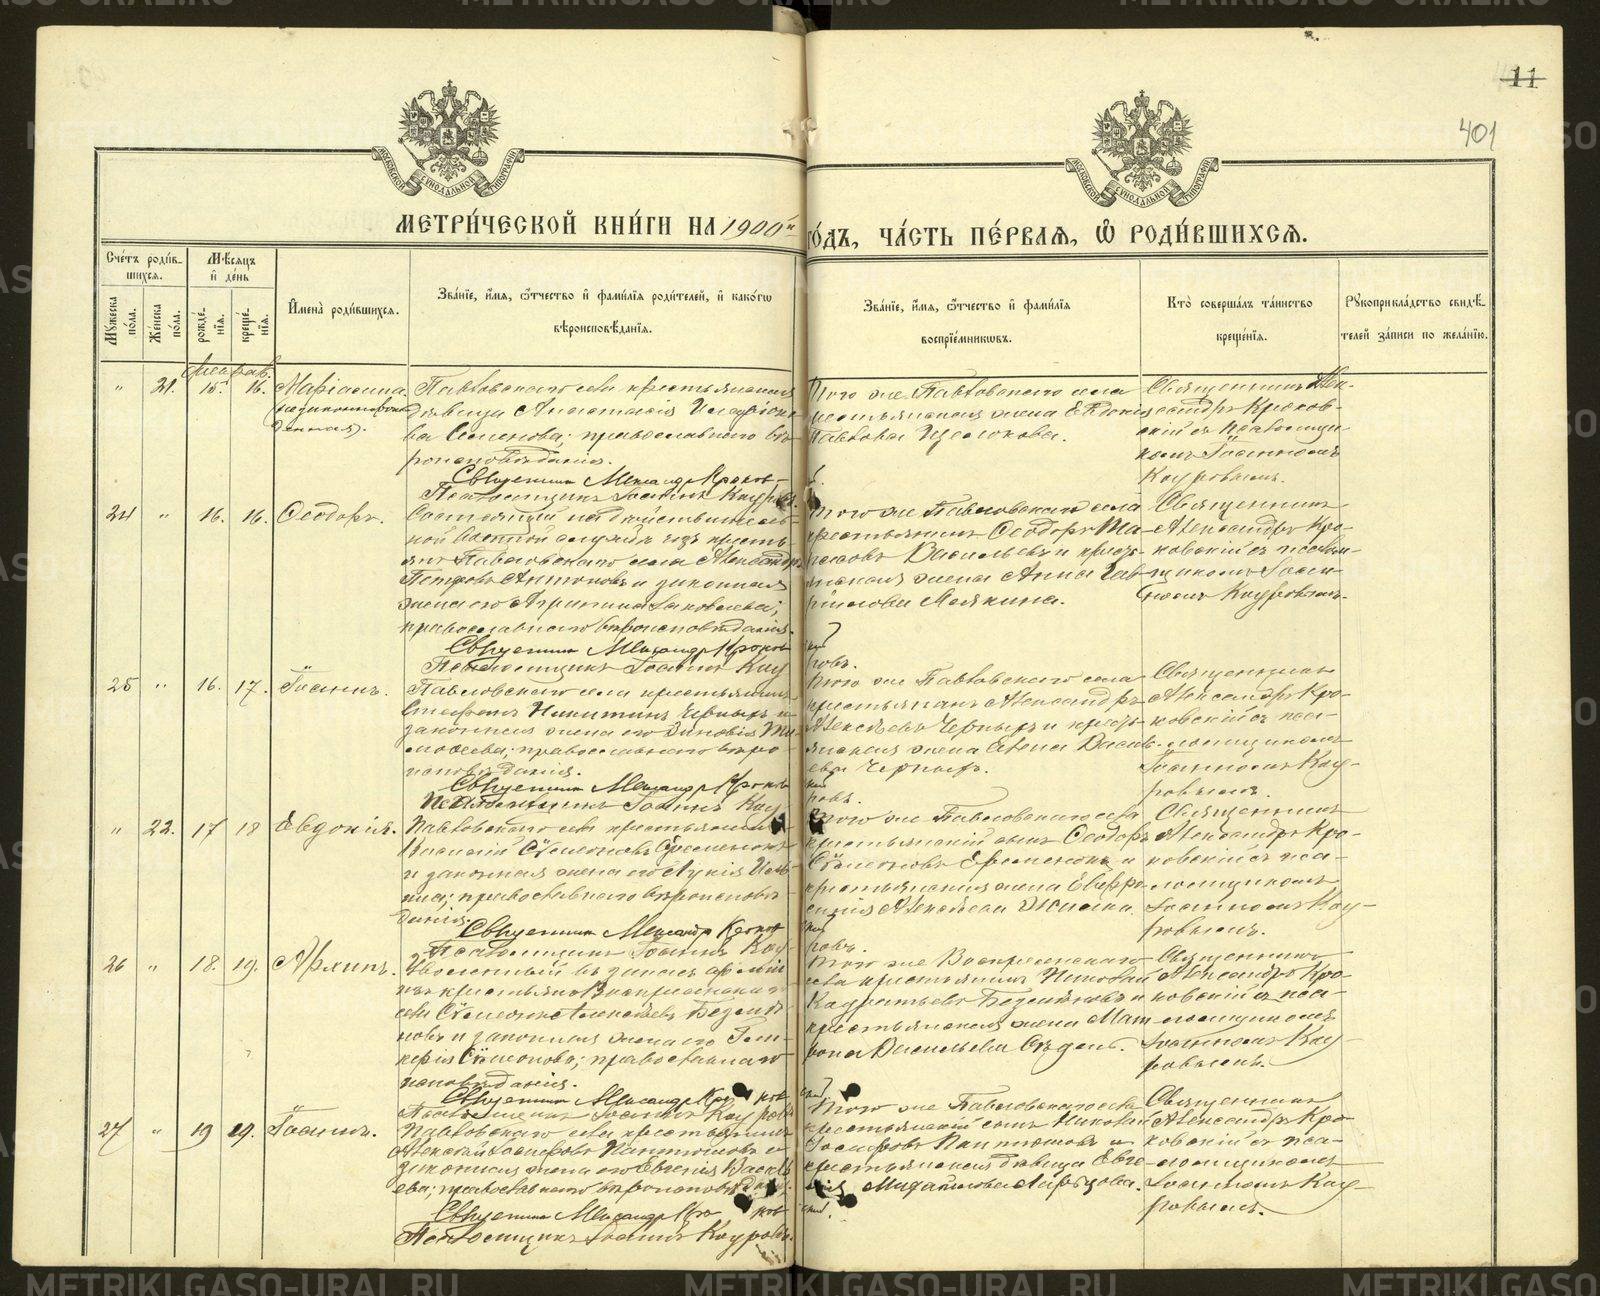 METRIKI.GASO-URAL.RU
11
401
МОСКОВСКОЙ СѴНОДАЛЬНОЙ ТИПОГРАФІИ
МОСКОВСКОЙ СѴНОДАЛЬНОЙ ТИПОГРАФІИ
МЕТРИ́ЧЕСКОЙ КНИ́ГИ НА 1900й ГО́ДЪ, ЧА́СТЬ ПЕ́РВАЯ, Ѡ҆ РОДИ́ВШИХСѦ.
Сче́тъ роди́в-
шихся.
Мѣ́сяцъ
и҆ де́нь
Мꙋ́жеска по́ла.
Же́нска по́ла.
рожде́нїѧ.
креще́нїѧ.
И҆мена̀ роди́вшихсѧ.
Зва́нїе, и҆́мѧ, ѻ҆́тчество и҆ фами́лїѧ роди́телей, и҆ како́гѡ
вѣроисповѣ́данїѧ.
Зва́нїе, и҆́мѧ, ѻ҆́тчество и҆ фами́лїѧ
воспрїе́мникѡвъ.
Кто̀ соверша́лъ та́инство
креще́нїѧ.
Рꙋкоприкла́дство свидѣ́-
телей за́писи по жела́нїю.
Феврал.
" 21. 15. 16. Маріамна
(незаконнорож-
денная).
Павловскаго села крестьянская
дѣвица Анастасія
ва Семенова; православнаго вѣ-
роисповѣданія.
Священникъ Александръ Крюков-
Псаломщикъ Іоаннъ Кауровъ.
того же Павловскаго села
крестьянская жена Евдокія
Павлова Щелокова.
Священникъ Алек-
сандръ Крюков-
скій съ псаломщи-
комъ Іоанномъ
Кауровымъ.
24 " 16. 16. Ѳеодоръ.
Состоящій на дѣйствитель-
ной военной службѣ изъ кресть-
янъ Павловскаго села Александръ
Петровъ Антоновъ и законная
жена его Агрипина Іаковлева;
православнаго вѣроисповѣданія.
Священникъ Александръ Крюков
Псаломщикъ Іоаннъ Кау
ровъ.
того же Павловскаго села
крестьянинъ Ѳеодоръ
Васильевъ и кресть-
янская жена Анна Гав-
риилова Мелкина.
Священникъ
Александръ Крю-
ковскій съ псалом-
щикомъ Іоан-
номъ Кауровымъ.
25 " 16. 17. Іоаннъ.
Павловскаго села крестьянинъ
Стефанъ Никитинъ Черныхъ и
законная жена его Зиновія Ти-
моѳеева; православнаго вѣро-
исповѣданія.
Священникъ Александръ Крюков
Псаломщикъ Іоаннъ Кау
ровъ.
того же Павловскаго села
крестьянинъ Александръ
Алексѣевъ Черныхъ и кресть-
янская жена Елена Василь-
ева Черныхъ.
Священникъ
Александръ Крю-
ковскій съ пса-
ломщикомъ
Іоанномъ Кау-
ровымъ.
" 22. 17 18 Евдокія.
Павловскаго села крестьянинъ
Василій Сѵмеоновъ Еременокъ
и законная жена его Лукія Иль-
ина; православнаго вѣроисповѣ-
данія.
Священникъ Александръ Крюков
Псаломщикъ Іоаннъ Кау
ровъ.
того же Павловскаго села
крестьянскій сынъ Ѳеодоръ
Сѵмеоновъ Еременокъ и
крестьянская жена Евфро-
синія Алексѣева
Священникъ
Александръ Крю-
ковскій съ пса-
ломщикомъ
Іоанномъ Кау-
ровымъ.
26 " 18. 19. Архипъ.
Уволенный въ запасъ арміи
изъ крестьянъ Воскресенскаго
села Сѵмеонъ Алексѣевъ
новъ и законная жена его Гли-
керія Сѵмеонова; православнаго
исповѣданія.
Священникъ Александръ Крюков
Псаломщикъ Іоаннъ Кауровъ
того же Воскресенскаго
села крестьянинъ Николай
и
крестьянская жена Мат-
рона Васильева
Священникъ
Александръ Крю-
ковскій съ пса-
ломщикомъ
Іоанномъ Кау-
ровымъ.
27 " 19 19. Іоаннъ.
Павловскаго села крестьянинъ
Алексѣй Іосифовъ Пантюховъ и
законная жена его Евгенія Василь-
ева; православнаго вѣроисповѣданія.
Священникъ Александръ Крюков
Псаломщикъ Іоаннъ Кауровъ.
того же Павловскаго села
крестьянскій сынъ Николай
Іосифовъ Пантюховъ и
крестьянская дѣвица Евге-
нія Михайлова
Священникъ
Александръ Крю-
ковскій съ пса-
ломщикомъ
Іоанномъ Кау-
ровымъ.
METRIKI.GASO-URAL.RU